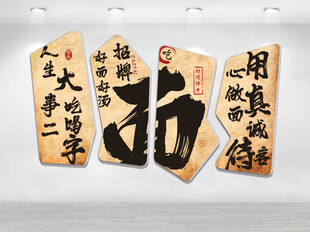 人生大事
吃喝二字
招牌
好面好汤
面
吃
用心做面
真诚待客